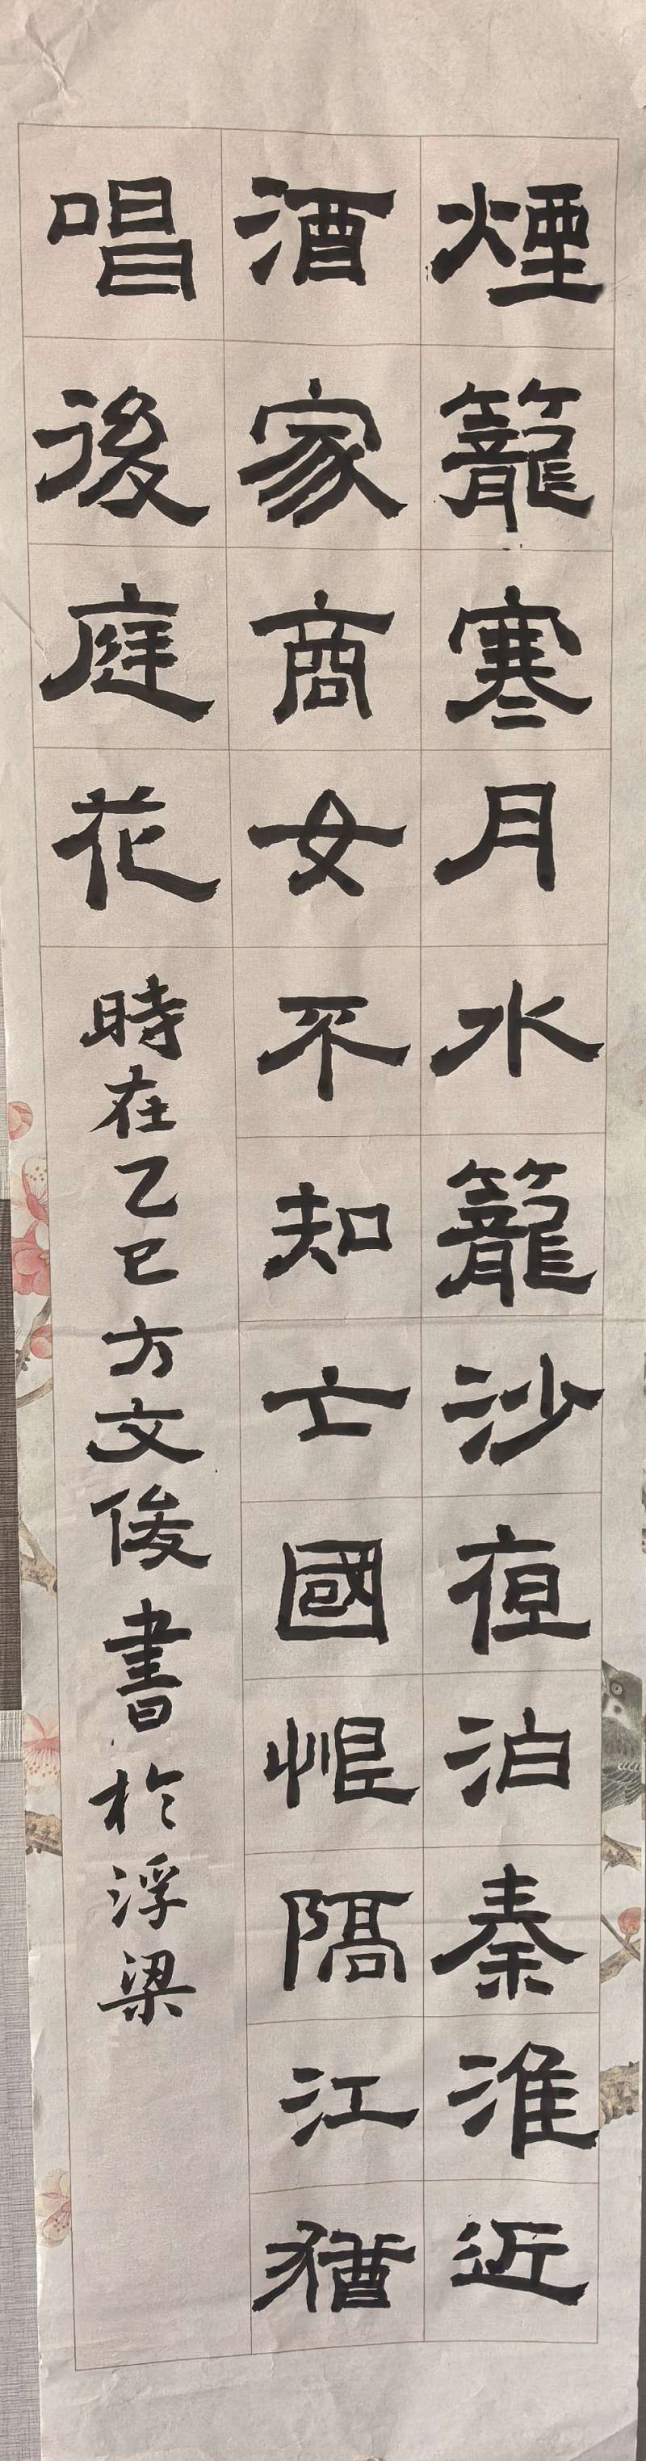 煙籠寒月水籠沙夜泊秦淮近
酒家商女不知亡國恨隔江猶
唱後庭花
時在乙巳方文俊書於浮梁